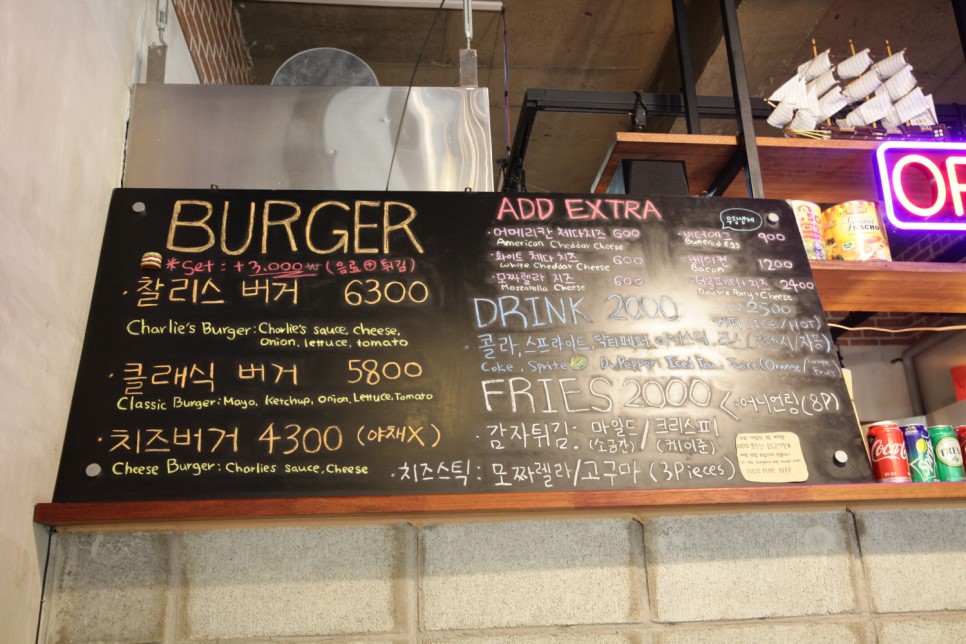 BURGER
*Set : +3,000₩ (음료⊕튀김)
·찰리스 버거 6300
Charlie's Burger: Charlie's sauce, cheese,
Onion, lettuce, tomato
·클래식 버거 5800
Classic Burger: Mayo, Ketchup, Onion, Lettuce, Tomato
·치즈버거 4300 (야채X)
Cheese Burger: Charlies sauce, Cheese
ADD EXTRA
·어메리칸 체다치즈 600
American Cheddar Cheese
·화이트 체다 치즈 600
White Cheddar Cheese
·모짜렐라 치즈 600
Mozzarella Cheese
900
Egg
·베이컨 1200
Bacon
치즈 2400
Double Patty·Cheese
DRINK 2000
2500
커피 (ICE/HOT)
·콜라, 스프라이트, 닥터페퍼,
Coke, Sprite, Dr.Pepper, Iced Tea, Juice (Orange/
FRIES 2000 <·어니언링(8P)
·감자튀김: 마일드/크리스피
(소금간) (케이준)
·치즈스틱: 모짜렐라/고구마 (3Pieces)
100% PURE BEEF
OP
Coca